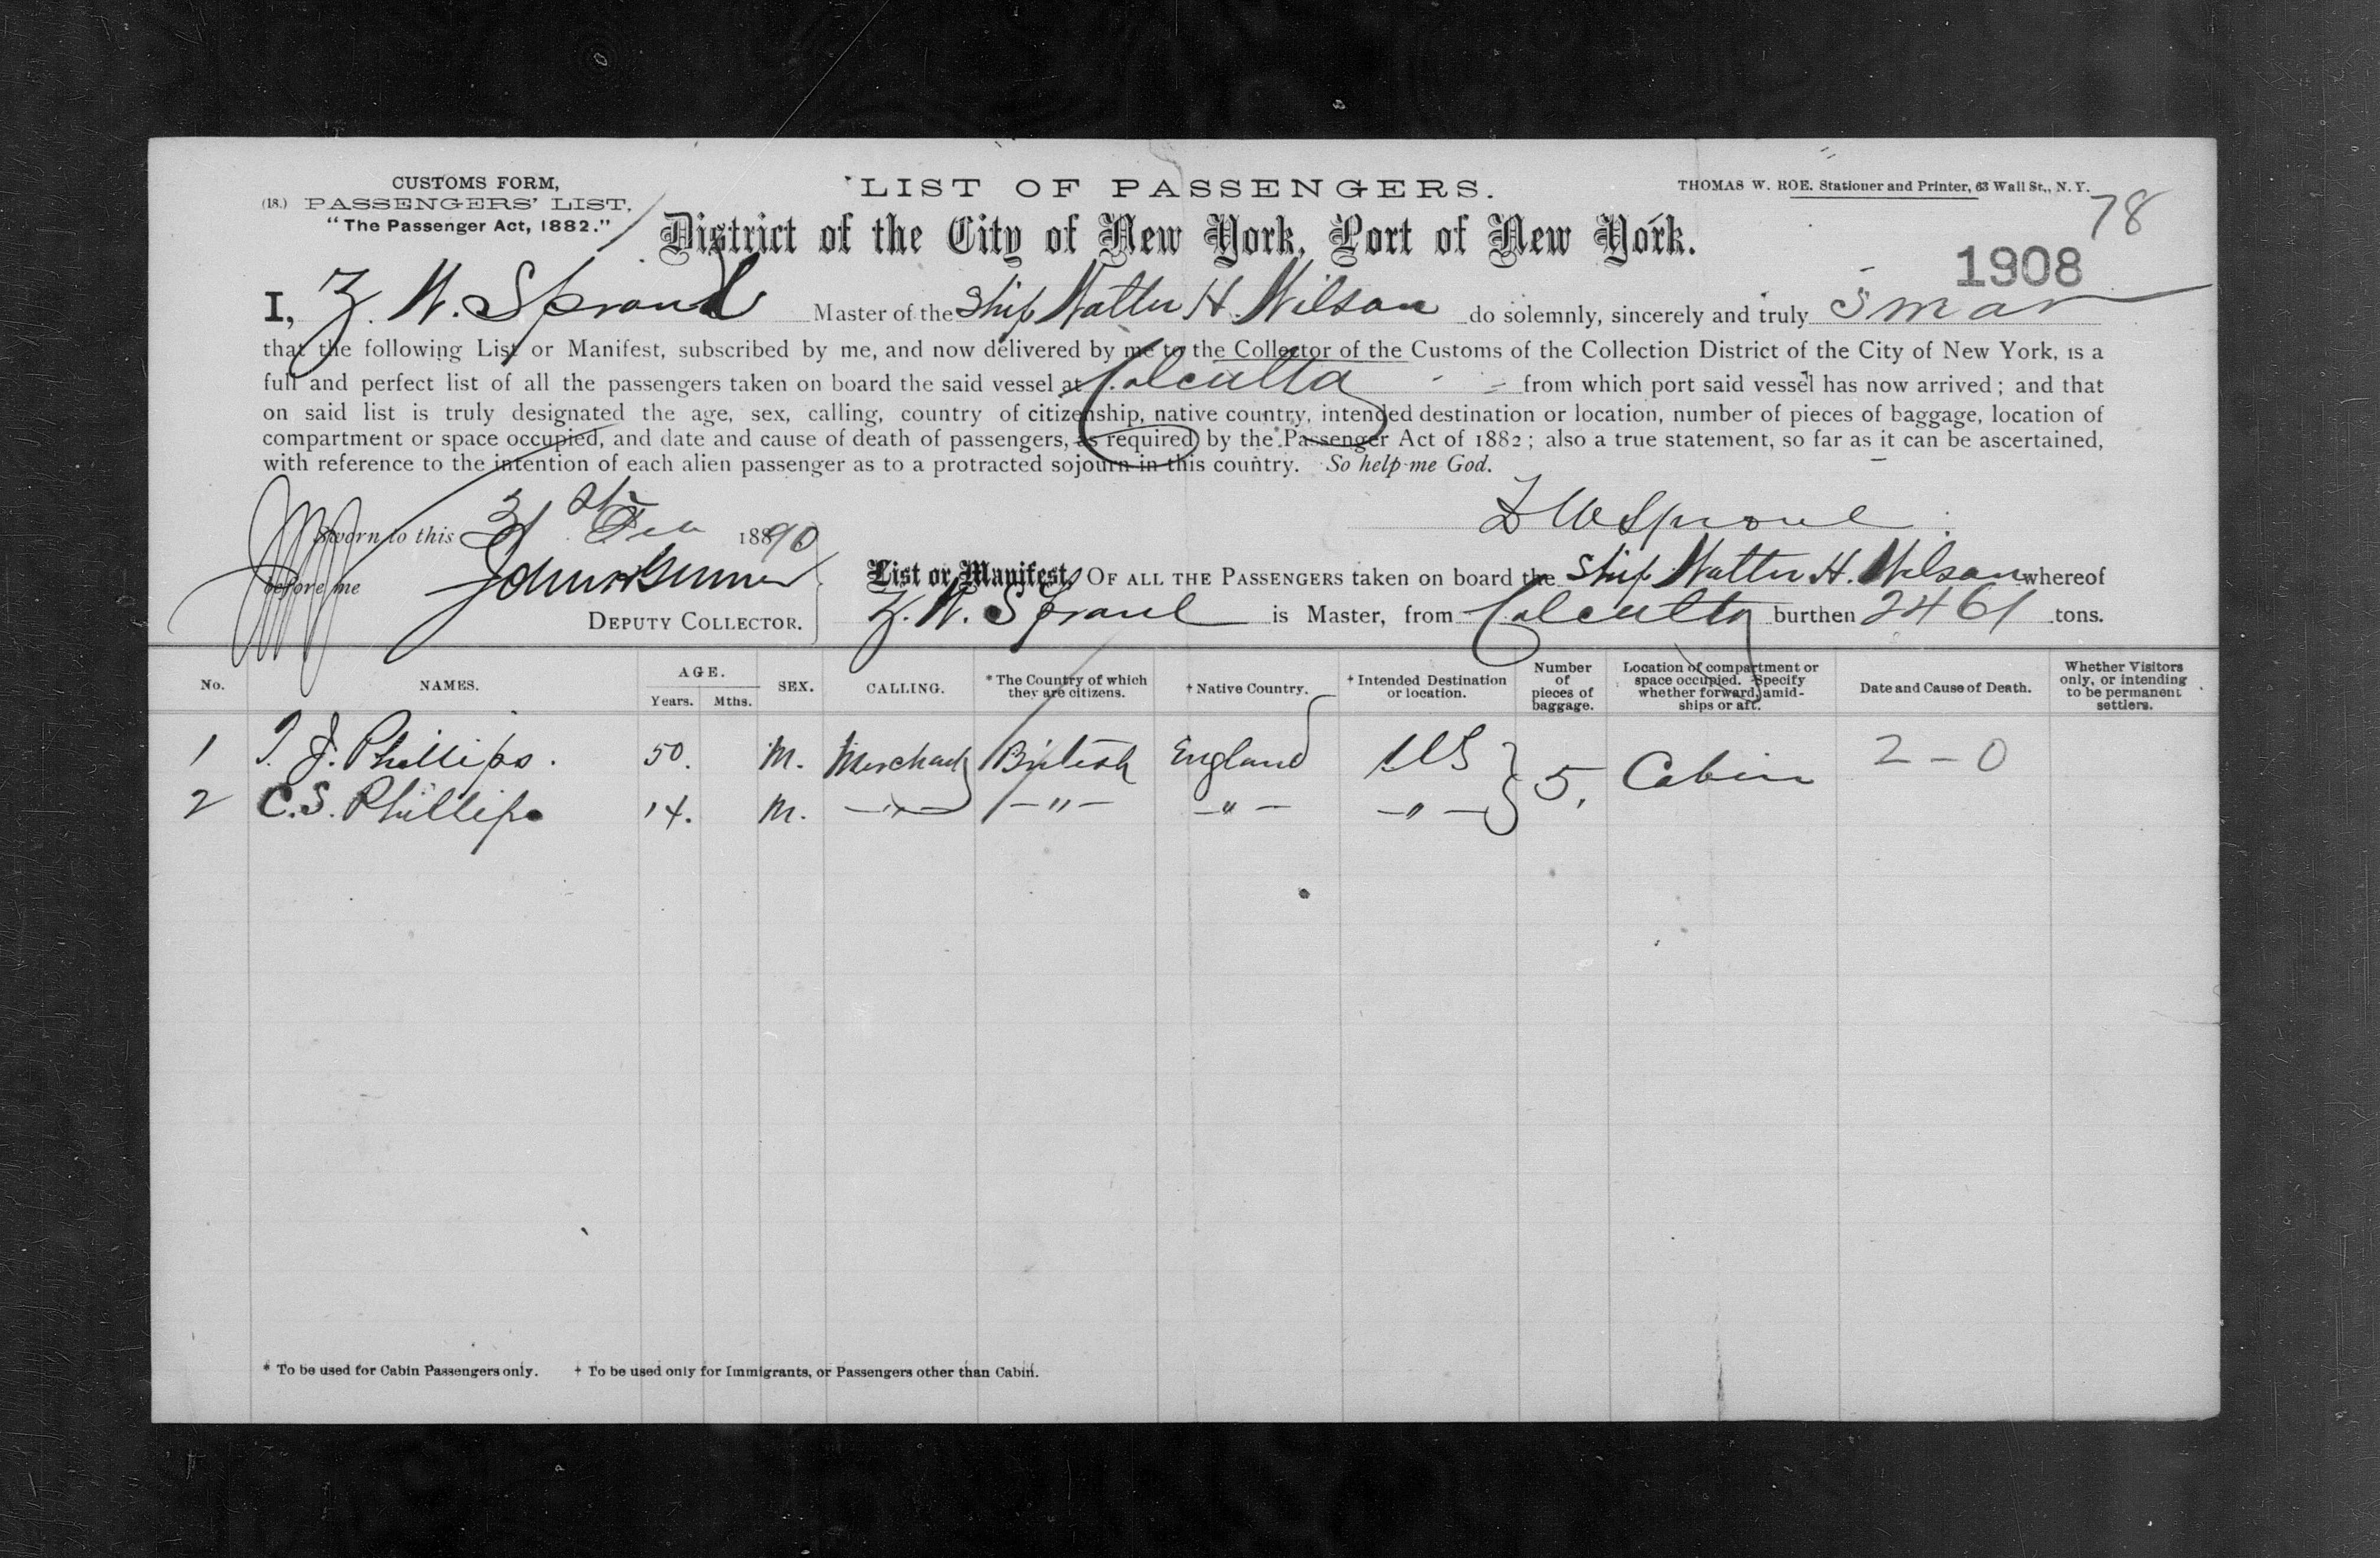 CUSTOMS FORM,
(18.) PASSENGERS' LIST.
"The Passenger Act, 1882."
LIST OF PASSENGERS.
THOMAS W. ROE. Stationer and Printer, 63 Wall St., N. Y.
78
District of the City of New York, Port of New York.
1908
I, Z. W. Sproul Master of the Ship Walter H. Wilson do solemnly, sincerely and truly swear
that the following List or Manifest, subscribed by me, and now delivered by me to the Collector of the Customs of the Collection District of the City of New York, is a
full and perfect list of all the passengers taken on board the said vessel at Calcutta from which port said vessel has now arrived; and that
on said list is truly designated the age, sex, calling, country of citizenship, native country, intended destination or location, number of pieces of baggage, location of
compartment or space occupied, and date and cause of death of passengers, as required by the Passenger Act of 1882; also a true statement, so far as it can be ascertained,
with reference to the intention of each alien passenger as to a protracted sojourn in this country. So help me God.
Sworn to this 1890
Z W Sproul
before me
DEPUTY COLLECTOR.
List or Manifest, OF ALL THE PASSENGERS taken on board the Ship Walter H. Wilson whereof
Z. W. Sproul is Master, from Calcutta burthen 2461 tons.
No. NAMES. AGE. Years. Mths. SEX. CALLING. * The Country of which they are citizens. † Native Country. † Intended Destination or location. Number of pieces of baggage. Location of compartment or space occupied. Specify whether forward, amidships or aft. Date and Cause of Death. Whether Visitors only, or intending to be permanent settlers.
1 T. J. Phillips. 50. M. Merchant British England US 5. Cabin 2 - 0
2 C. S. Phillips 14. M. -"- -"- -"- -"-
* To be used for Cabin Passengers only. † To be used only for Immigrants, or Passengers other than Cabin.